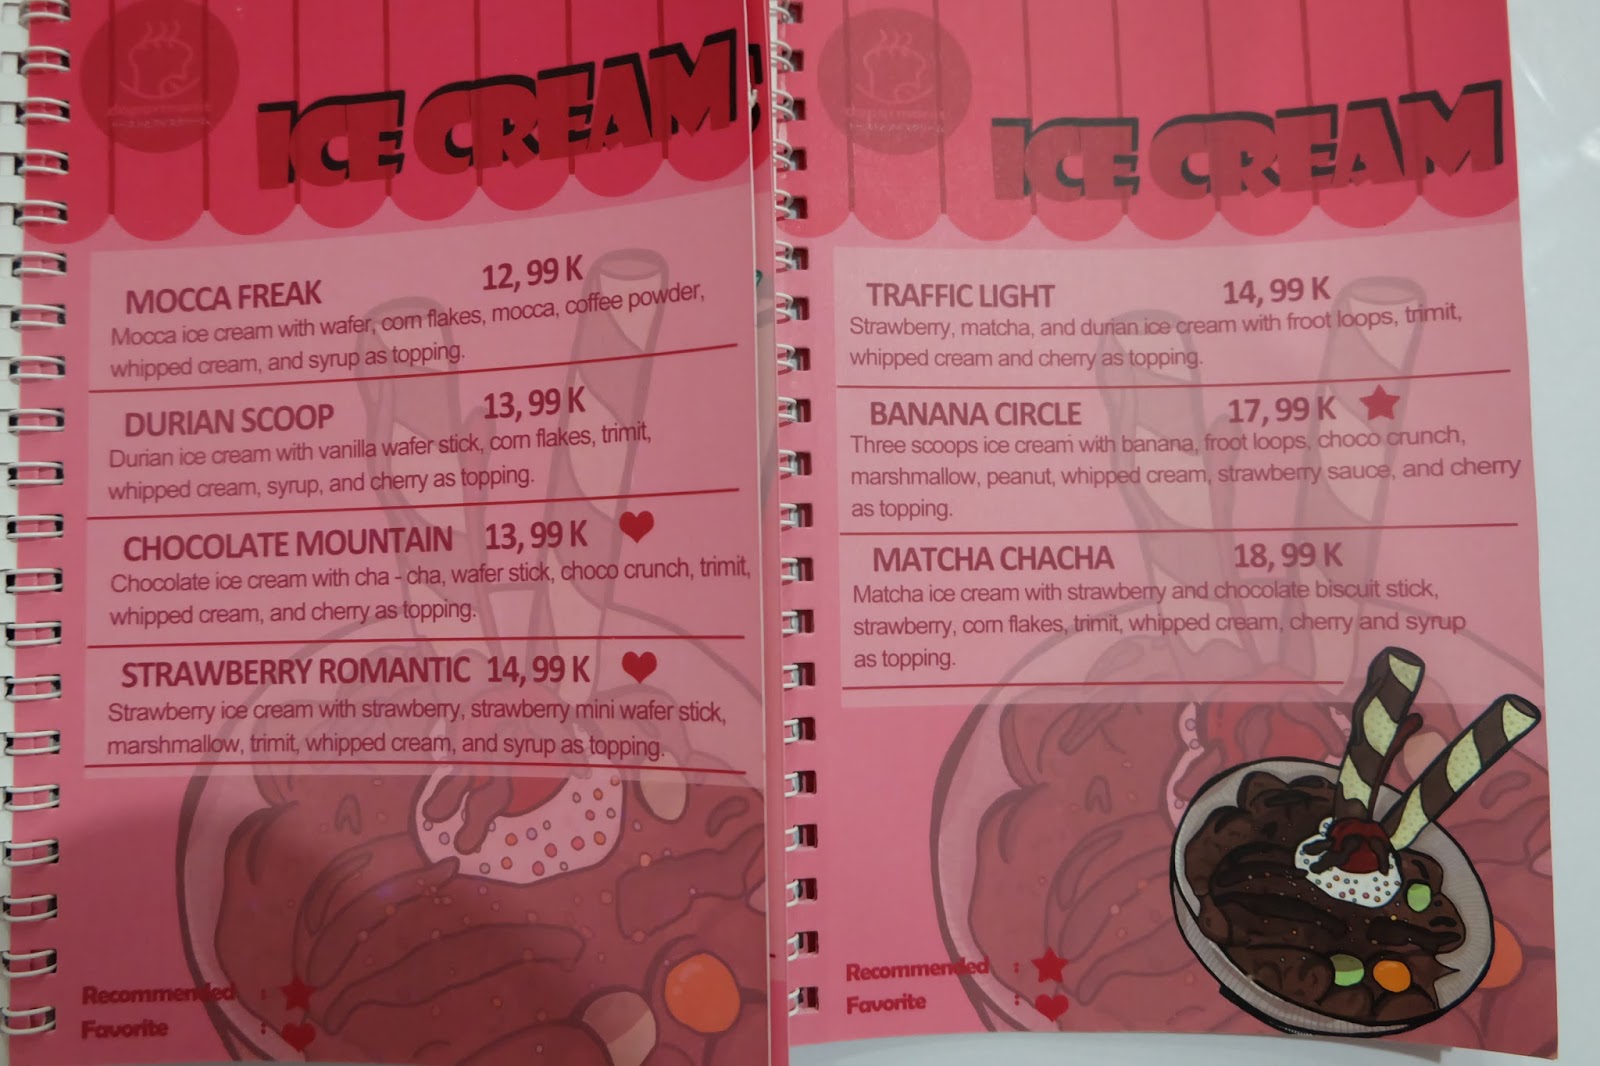 ICE CREAM
MOCCA FREAK 12,99 K
Mocca ice cream with wafer, corn flakes, mocca, coffee powder,
whipped cream, and syrup as topping.
DURIAN SCOOP 13,99 K
Durian ice cream with vanilla wafer stick, corn flakes, trimit,
whipped cream, syrup, and cherry as topping.
CHOCOLATE MOUNTAIN 13,99 K
Chocolate ice cream with cha - cha, wafer stick, choco crunch, trimit,
whipped cream, and cherry as topping.
STRAWBERRY ROMANTIC 14,99 K
Strawberry ice cream with strawberry, strawberry mini wafer stick,
marshmallow, trimit, whipped cream, and syrup as topping.
Recommended :
Favorite :
ICE CREAM
TRAFFIC LIGHT 14,99 K
Strawberry, matcha, and durian ice cream with froot loops, trimit,
whipped cream and cherry as topping.
BANANA CIRCLE 17,99 K
Three scoops ice cream with banana, froot loops, choco crunch,
marshmallow, peanut, whipped cream, strawberry sauce, and cherry
as topping.
MATCHA CHACHA 18,99 K
Matcha ice cream with strawberry and chocolate biscuit stick,
strawberry, corn flakes, trimit, whipped cream, cherry and syrup
as topping.
Recommended :
Favorite :